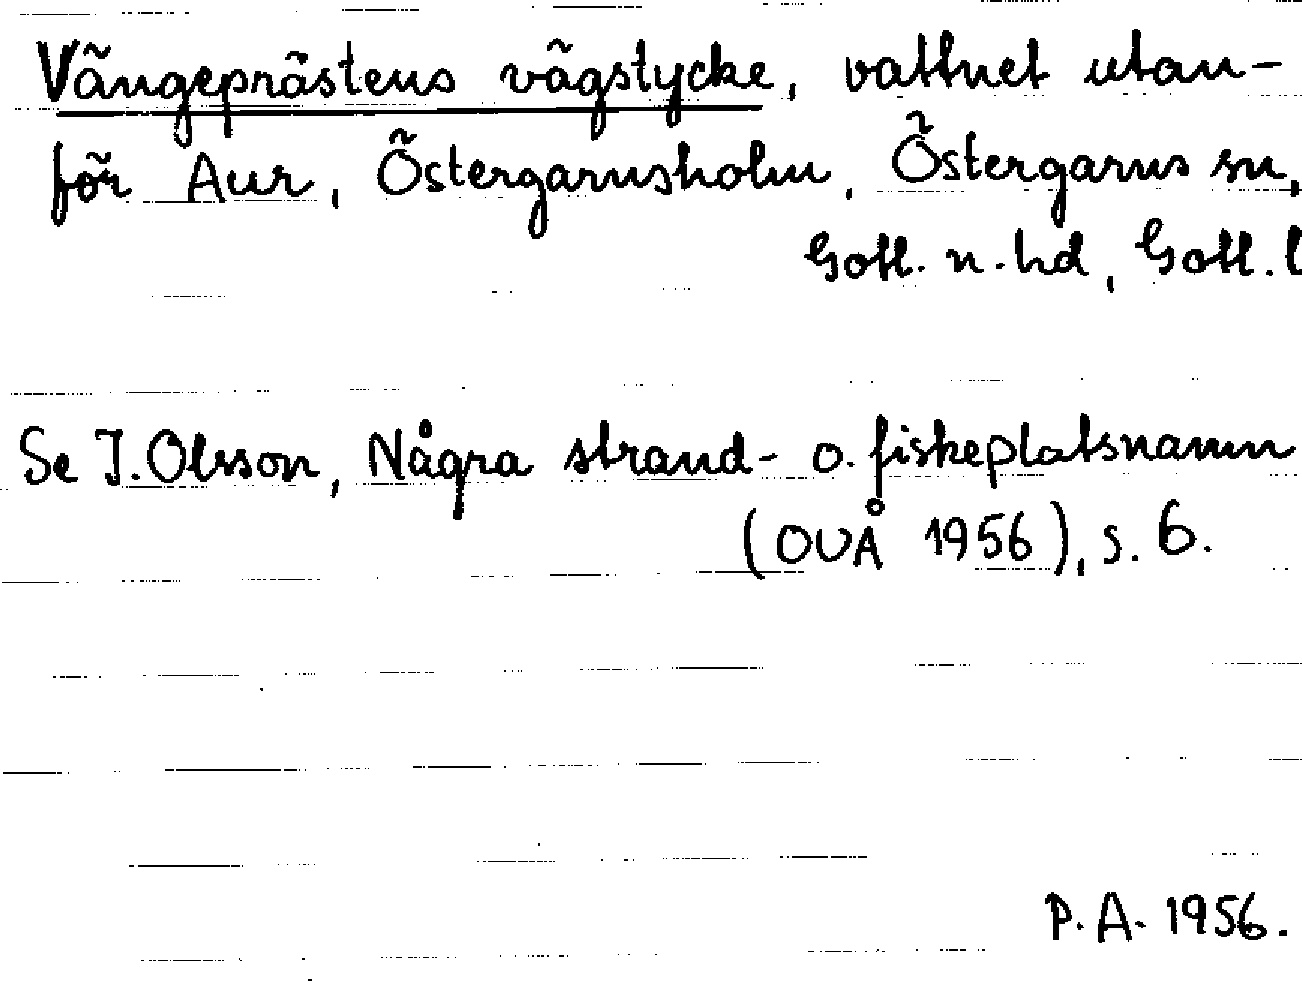 Vängeprästens vägstycke, vattnet utan-
för Aur, Östergarnsholm, Östergarns sn,
Gotl. n. hd, Gotl. l
Se I. Olsson, Några strand- o. fiskeplatsnamn
(OUÅ 1956), s. 6.
P. A. 1956.